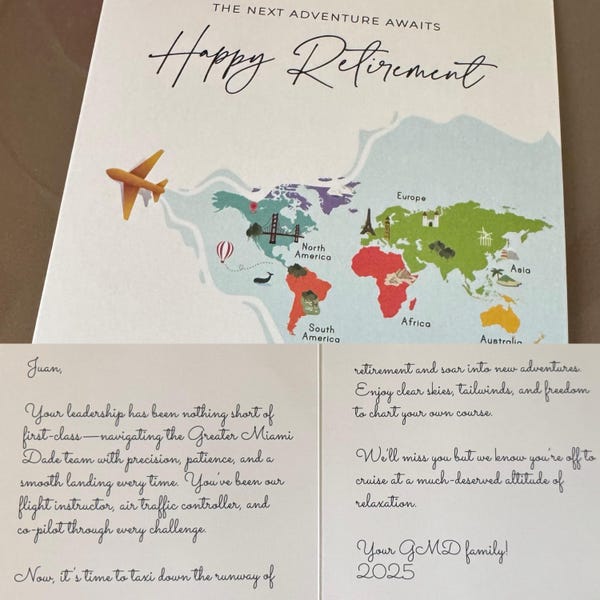 THE NEXT ADVENTURE AWAITS
Happy Retirement
Europe
North
America
Asia
Africa
South
America
Australia
Juan,
Your leadership has been nothing short of
first-class—navigating the Greater Miami
Dade team with precision, patience, and a
smooth landing every time. You've been our
flight instructor, air traffic controller, and
co-pilot through every challenge.
Now, it's time to taxi down the runway of
retirement and soar into new adventures.
Enjoy clear skies, tailwinds, and freedom
to chart your own course.
We'll miss you but we know you're off to
cruise at a much-deserved altitude of
relaxation.
Your GMD family!
2025